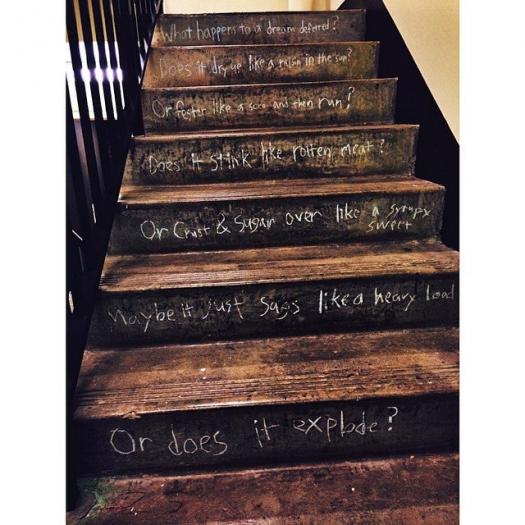 What happens to a dream deferred?
Does it dry up like a raisin in the sun?
Or fester like a sore and then run?
Does it stink like rotten meat?
Or Crust & Sugar over like a syrupy
sweet
Maybe it just sags like a heavy load
Or does it explode?